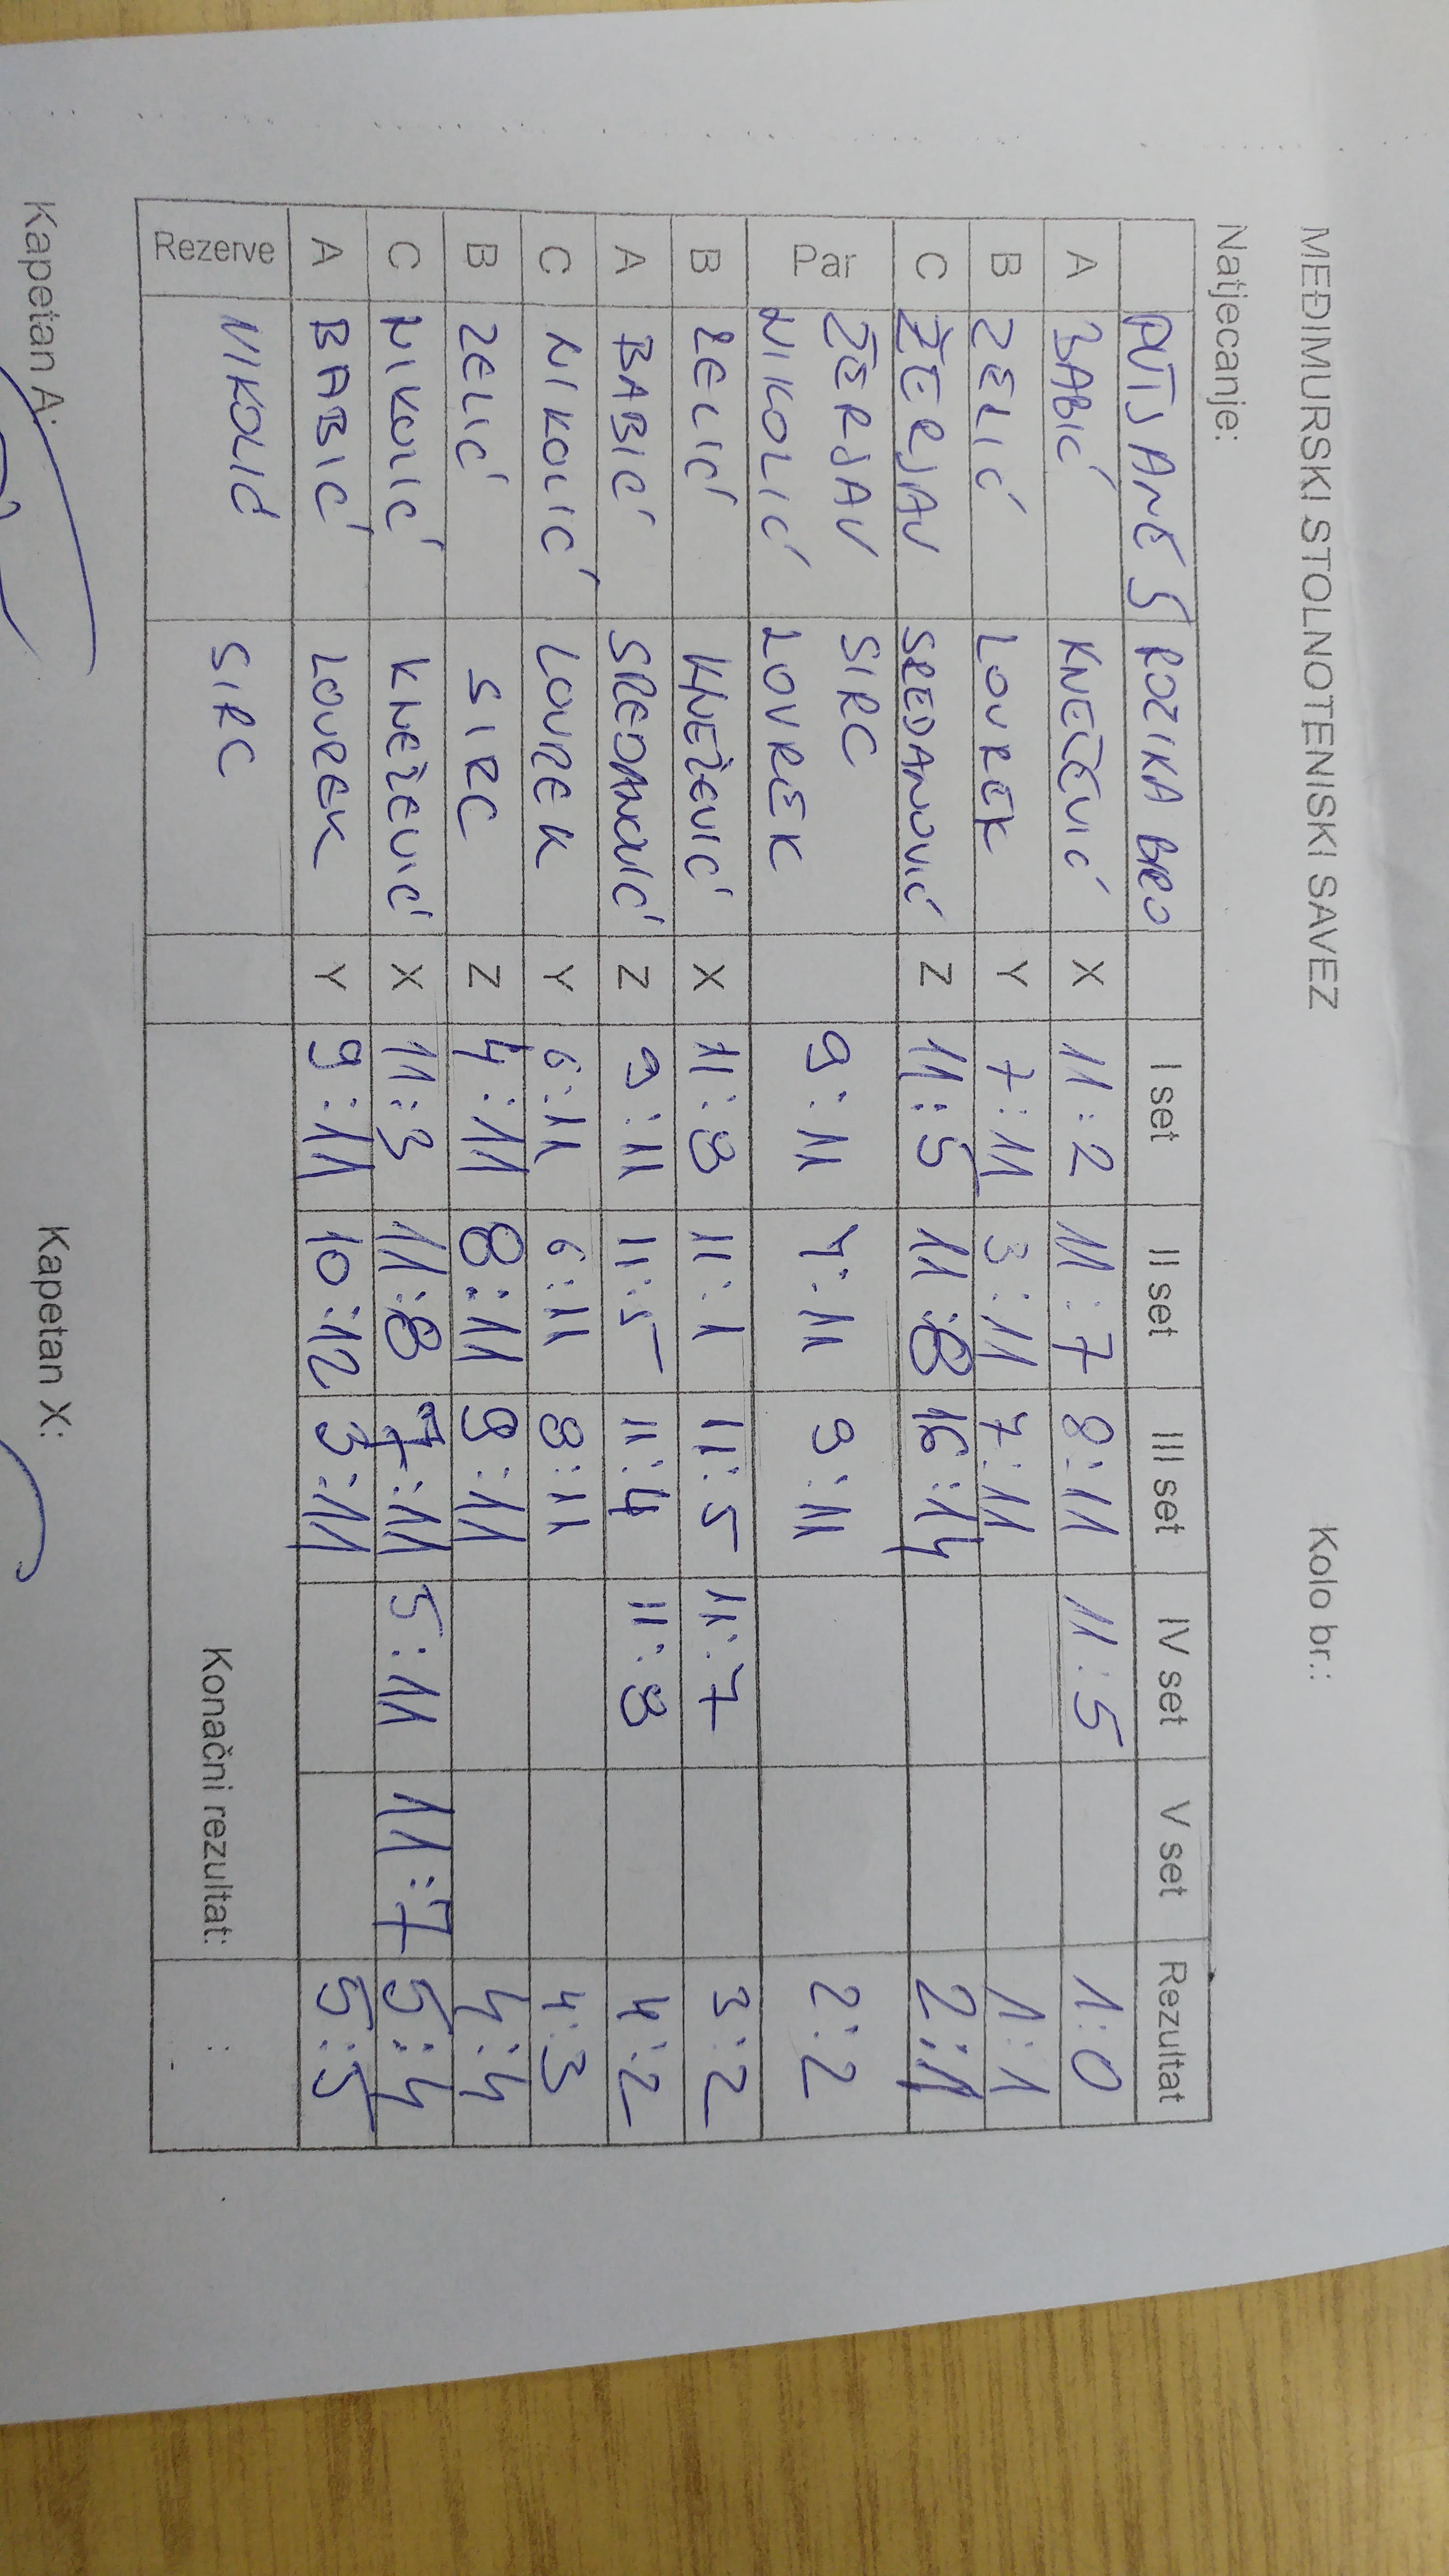 MEĐIMURSKI STOLNOTENISKI SAVEZ Kolo br.:
Natjecanje:
PUTJANE 5 ROZIKA BRO I set II set III set IV set V set Rezultat
A BABIĆ KNEŽEVIĆ X 11:2 11:7 8:11 11:5 1:0
B ZELIĆ LOVREK Y 7:11 3:11 7:11 1:1
C ŽERJAV SREDANOVIĆ Z 11:5 11:8 16:14 2:1
Par ŽERJAV SIRC 9:11 7:11 9:11 2:2
NIKOLIĆ LOVREK
B ZELIĆ KNEŽEVIĆ X 11:8 11:1 11:5 11:7 3:2
A BABIĆ SREDANOVIĆ Z 9:11 11:5 11:4 11:8 4:2
C NIKOLIĆ LOVREK Y 6:11 6:11 8:11 4:3
B ZELIĆ SIRC Z 4:11 8:11 9:11 4:4
C NIKOLIĆ KNEŽEVIĆ X 11:3 11:8 7:11 5:11 11:7 5:4
A BABIĆ LOVREK Y 9:11 10:12 3:11 5:5
Rezerve NIKOLIĆ SIRC Konačni rezultat: :
Kapetan A: Kapetan X: